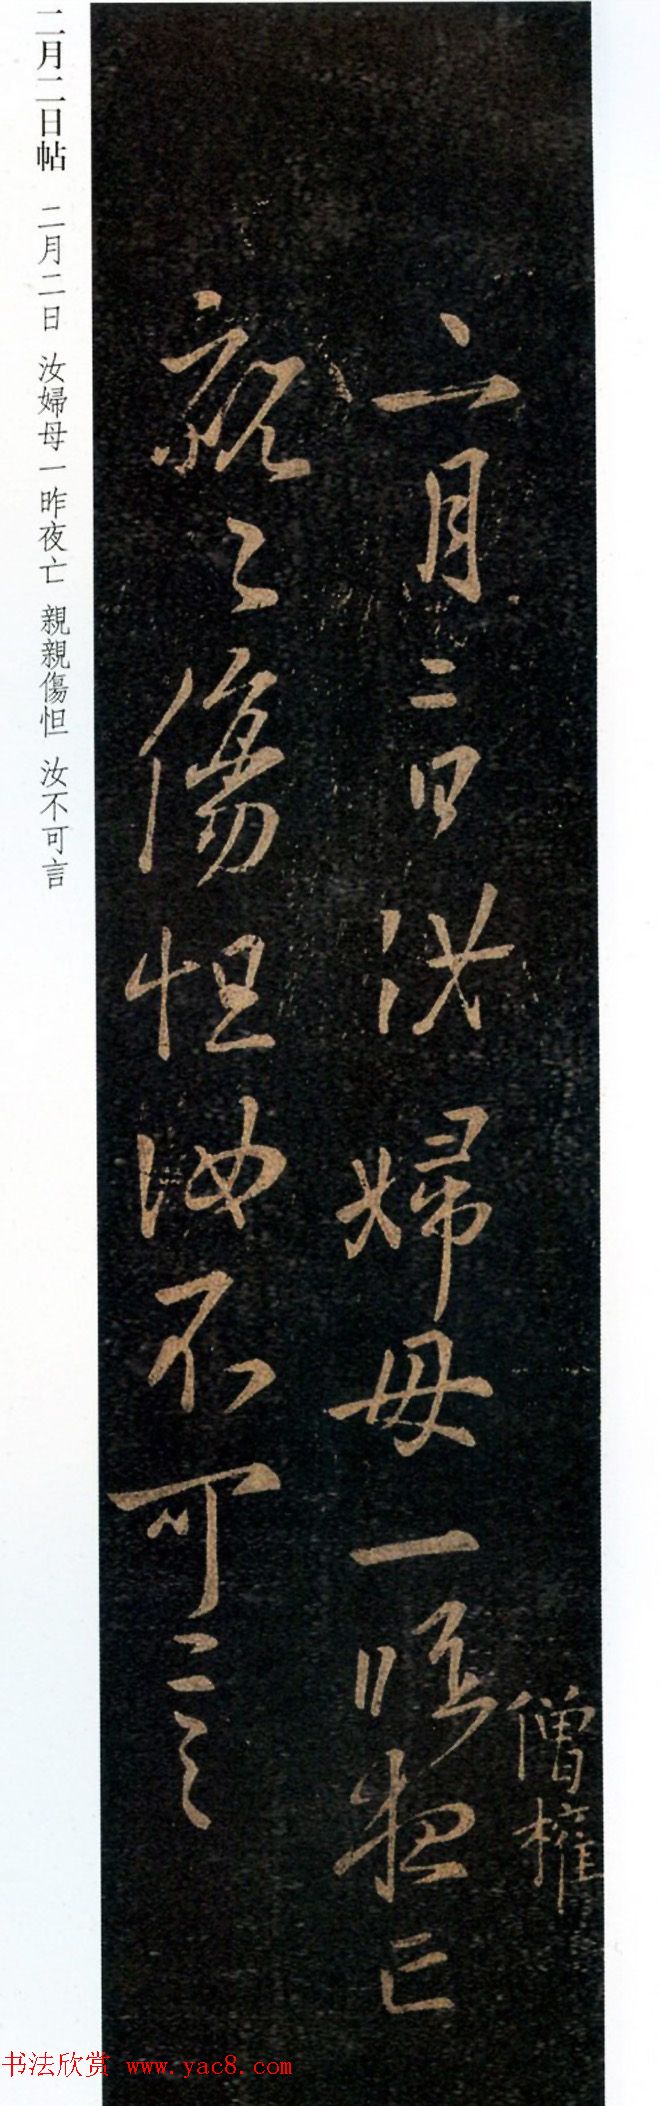 僧權
二月二日汝婦母一昨夜亡
親〻傷怛汝不可言
二月二日帖 二月二日 汝婦母一昨夜亡 親親傷怛 汝不可言
书法欣赏 www.yac8.com